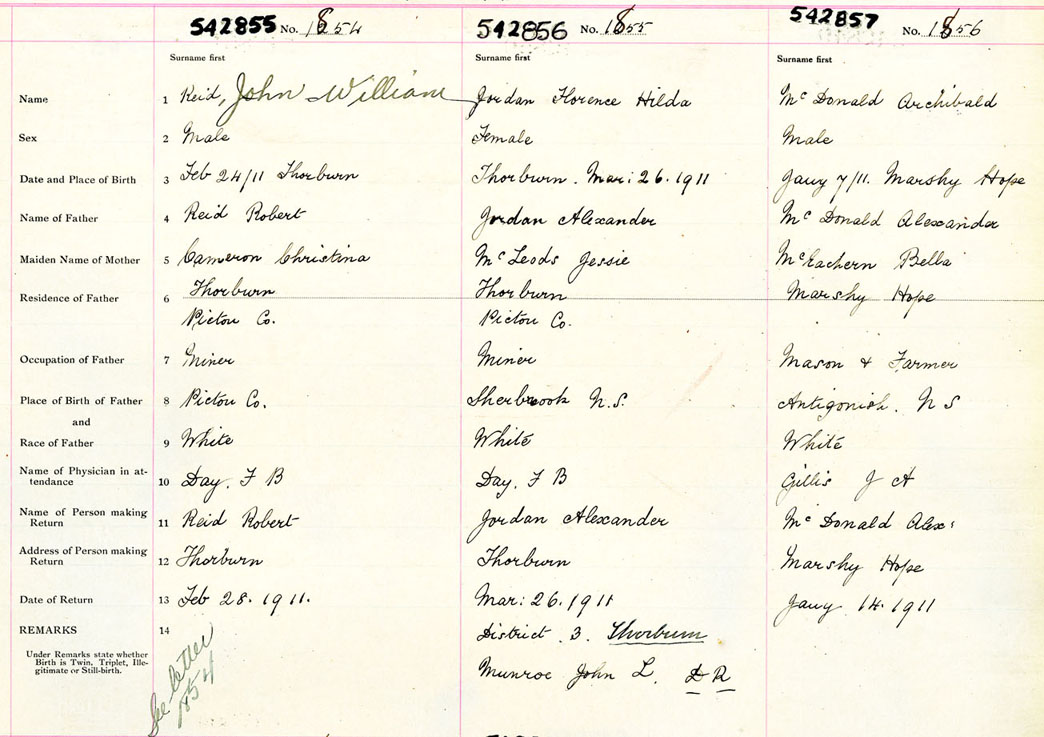 542855 No. 1854 542856 No. 1855 542857 No. 1856
Surname first Surname first Surname first
Name 1 Reid, John William Jordan Florence Hilda McDonald Archibald
Sex 2 Male Female Male
Date and Place of Birth 3 Feb 24/11 Thorburn Thorburn. Mar: 26. 1911 Jany 7/11. Marshy Hope
Name of Father 4 Reid Robert Jordan Alexander McDonald Alexander
Maiden Name of Mother 5 Cameron Christina McLeods Jessie McEachern Bella
Residence of Father 6 Thorburn Thorburn Marshy Hope
Pictou Co. Pictou Co.
Occupation of Father 7 Miner Miner Mason & Farmer
Place of Birth of Father 8 Pictou Co. Sherbrook N.S. Antigonish. N S
and
Race of Father 9 White White White
Name of Physician in at-
tendance 10 Day. F B Day. F B Gillis J A
Name of Person making
Return 11 Reid Robert Jordan Alexander McDonald Alex:
Address of Person making
Return 12 Thorburn Thorburn Marshy Hope
Date of Return 13 Feb 28. 1911. Mar: 26. 1911 Jany 14. 1911
REMARKS 14 District. 3. Thorburn
Under Remarks state whether
Birth is Twin, Triplet, Ille-
gitimate or Still-birth.
Munroe John L. D R
See letter
1854